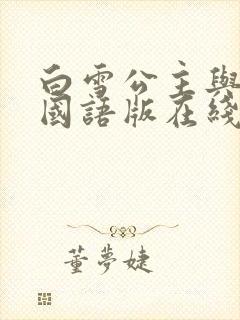 白雪公主與
國語版在綫
董夢婕